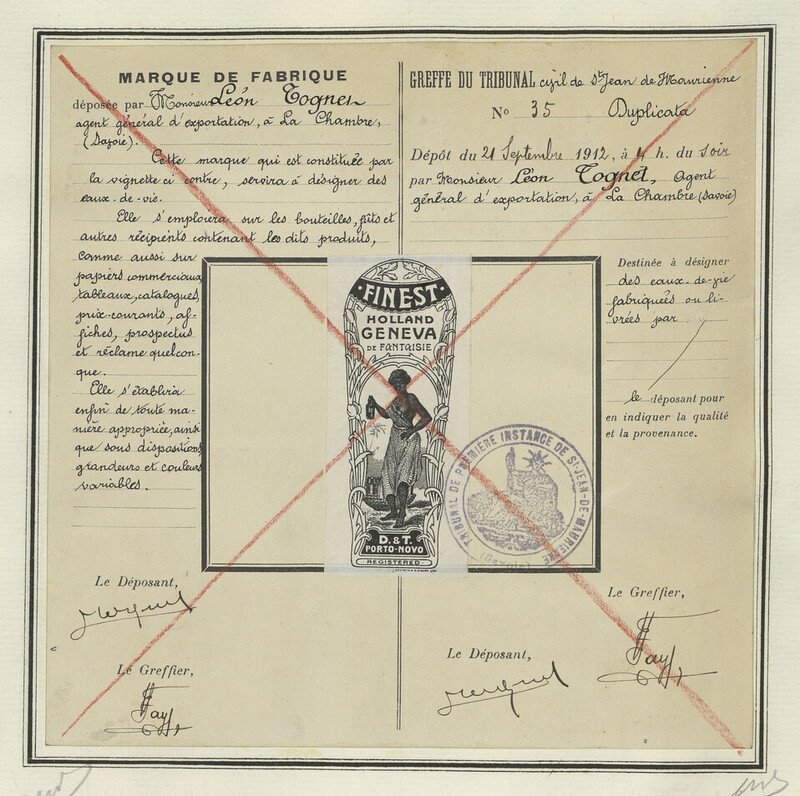 MARQUE DE FABRIQUE
déposée par Monsieur Léon Tognet
agent général d'exportation, à La Chambre,
(Savoie).
Cette marque qui est constituée par
la vignette ci contre, servira à désigner des
eaux-de-vie.
Elle s'emploiera sur les bouteilles, fûts et
autres récipients contenant les dits produits,
comme aussi sur
papiers commerciaux,
tableaux, catalogues,
prix-courants, af-
fiches, prospectus
et réclame quelcon-
que.
Elle s'établira
enfin de toute ma-
nière appropriée, ainsi
que sous dispositions,
grandeurs et couleurs
variables.
Le Déposant,
Le Greffier,
Fay
GREFFE DU TRIBUNAL civil de St Jean de Maurienne
No 35 Duplicata
Dépôt du 21 Septembre 1912, à 4 h. du Soir
par Monsieur Léon Tognet, Agent
général d'exportation, à La Chambre (Savoie)
Destinée à désigner
des eaux-de-vie
fabriquées ou li-
vrées par
le déposant pour
en indiquer la qualité
et la provenance.
FINEST
HOLLAND
GENEVA
DE FANTAISIE
D. & T.
PORTO-NOVO
REGISTERED
TRIBUNAL DE PREMIÈRE INSTANCE DE ST-JEAN-DE-MAURIENNE
(Savoie)
Le Greffier,
Fay
Le Déposant,